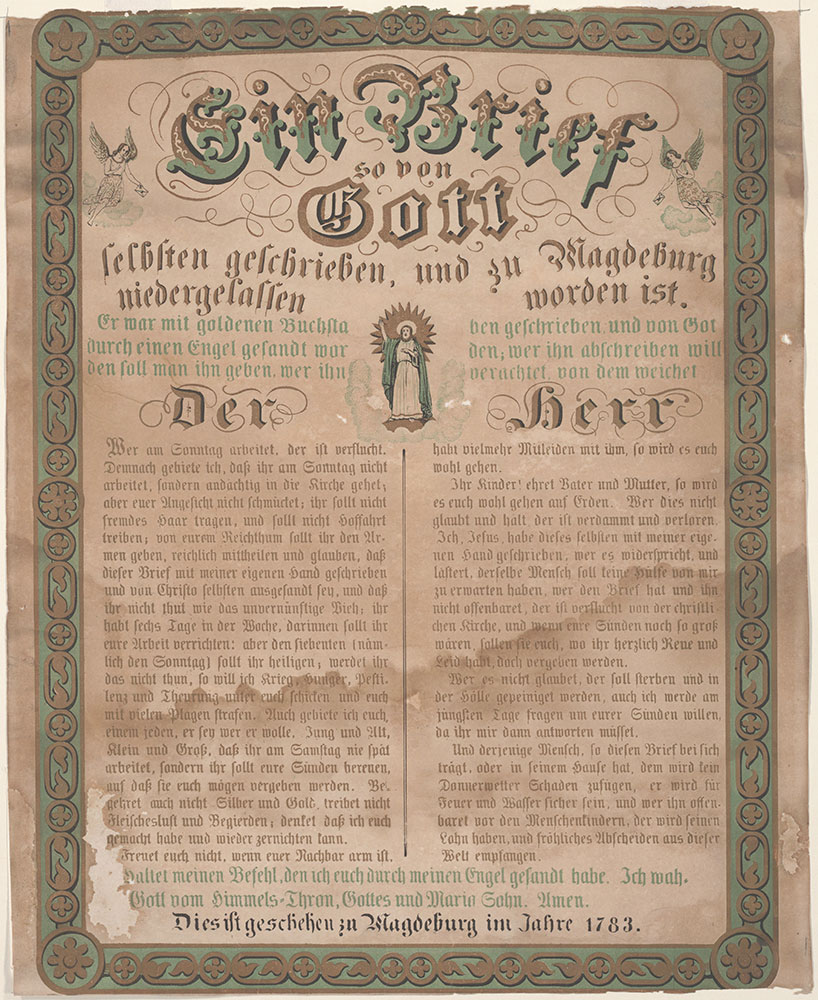 Ein Brief
so von
Gott
selbsten geschrieben, und zu Magdeburg
niedergelassen worden ist.
Er war mit goldenen Buchsta
ben geschrieben, und von Got
durch einen Engel gesandt wor
den; wer ihn abschreiben will
den soll man ihn geben, wer ihn
verachtet, von dem weichet
Der Herr
Wer am Sonntag arbeitet, der ist verflucht.
Demnach gebiete ich, daß ihr am Sonntag nicht
arbeitet, sondern andächtig in die Kirche gehet;
aber euer Angesicht nicht schmücket; ihr sollt nicht
fremdes Haar tragen, und sollt nicht Hoffahrt
treiben; von eurem Reichthum sollt ihr den Ar-
men geben, reichlich mittheilen und glauben, daß
dieser Brief mit meiner eigenen Hand geschrieben
und von Christo selbsten ausgesandt sey, und daß
ihr nicht thut wie das unvernünftige Vieh; ihr
habt sechs Tage in der Woche, darinnen sollt ihr
eure Arbeit verrichten: aber den siebenten (näm-
lich den Sonntag) sollt ihr heiligen; werdet ihr
das nicht thun, so will ich Krieg, Hunger, Pesti-
lenz und Theurung unter euch schicken und euch
mit vielen Plagen strafen. Auch gebiete ich euch,
einem jeden, er sey wer er wolle. Jung und Alt,
Klein und Groß, daß ihr am Samstag nie spät
arbeitet, sondern ihr sollt eure Sünden bereuen,
auf daß sie euch mögen vergeben werden. Be-
gehret auch nicht Silber und Gold, treibet nicht
Fleischeslust und Begierden; denket daß ich euch
gemacht habe und wieder zernichten kann.
Freuet euch nicht, wenn euer Nachbar arm ist.
habt vielmehr Mitleiden mit ihm, so wird es euch
wohl gehen.
Ihr Kinder! ehret Vater und Mutter, so wird
es euch wohl gehen auf Erden. Wer dies nicht
glaubt und hält, der ist verdammt und verloren.
Ich, Jesus, habe dieses selbsten mit meiner eige-
nen Hand geschrieben, wer es widerspricht, und
lästert, derselbe Mensch soll keine Hülfe von mir
zu erwarten haben, wer den Brief hat und ihn
nicht offenbaret, der ist verflucht von der christli-
chen Kirche, und wenn eure Sünden noch so groß
wären, sollen sie euch, wo ihr herzlich Reue und
Leid habt, doch vergeben werden.
Wer es nicht glaubet, der soll sterben und in
der Hölle gepeiniget werden, auch ich werde am
jüngsten Tage fragen um eurer Sünden willen,
da ihr mir dann antworten müsset.
Und derjenige Mensch, so diesen Brief bei sich
trägt, oder in seinem Hause hat, dem wird kein
Donnerwetter Schaden zufügen, er wird für
Feuer und Wasser sicher sein, und wer ihn offen-
baret vor den Menschenkindern, der wird seinen
Lohn haben, und fröhliches Abscheiden aus dieser
Welt empfangen.
Haltet meinen Befehl, den ich euch durch meinen Engel gesandt habe. Ich wah-
Gott vom Himmels-Thron, Gottes und Mario Sohn. Amen.
Dies ist geschehen zu Magdeburg im Jahre 1783.